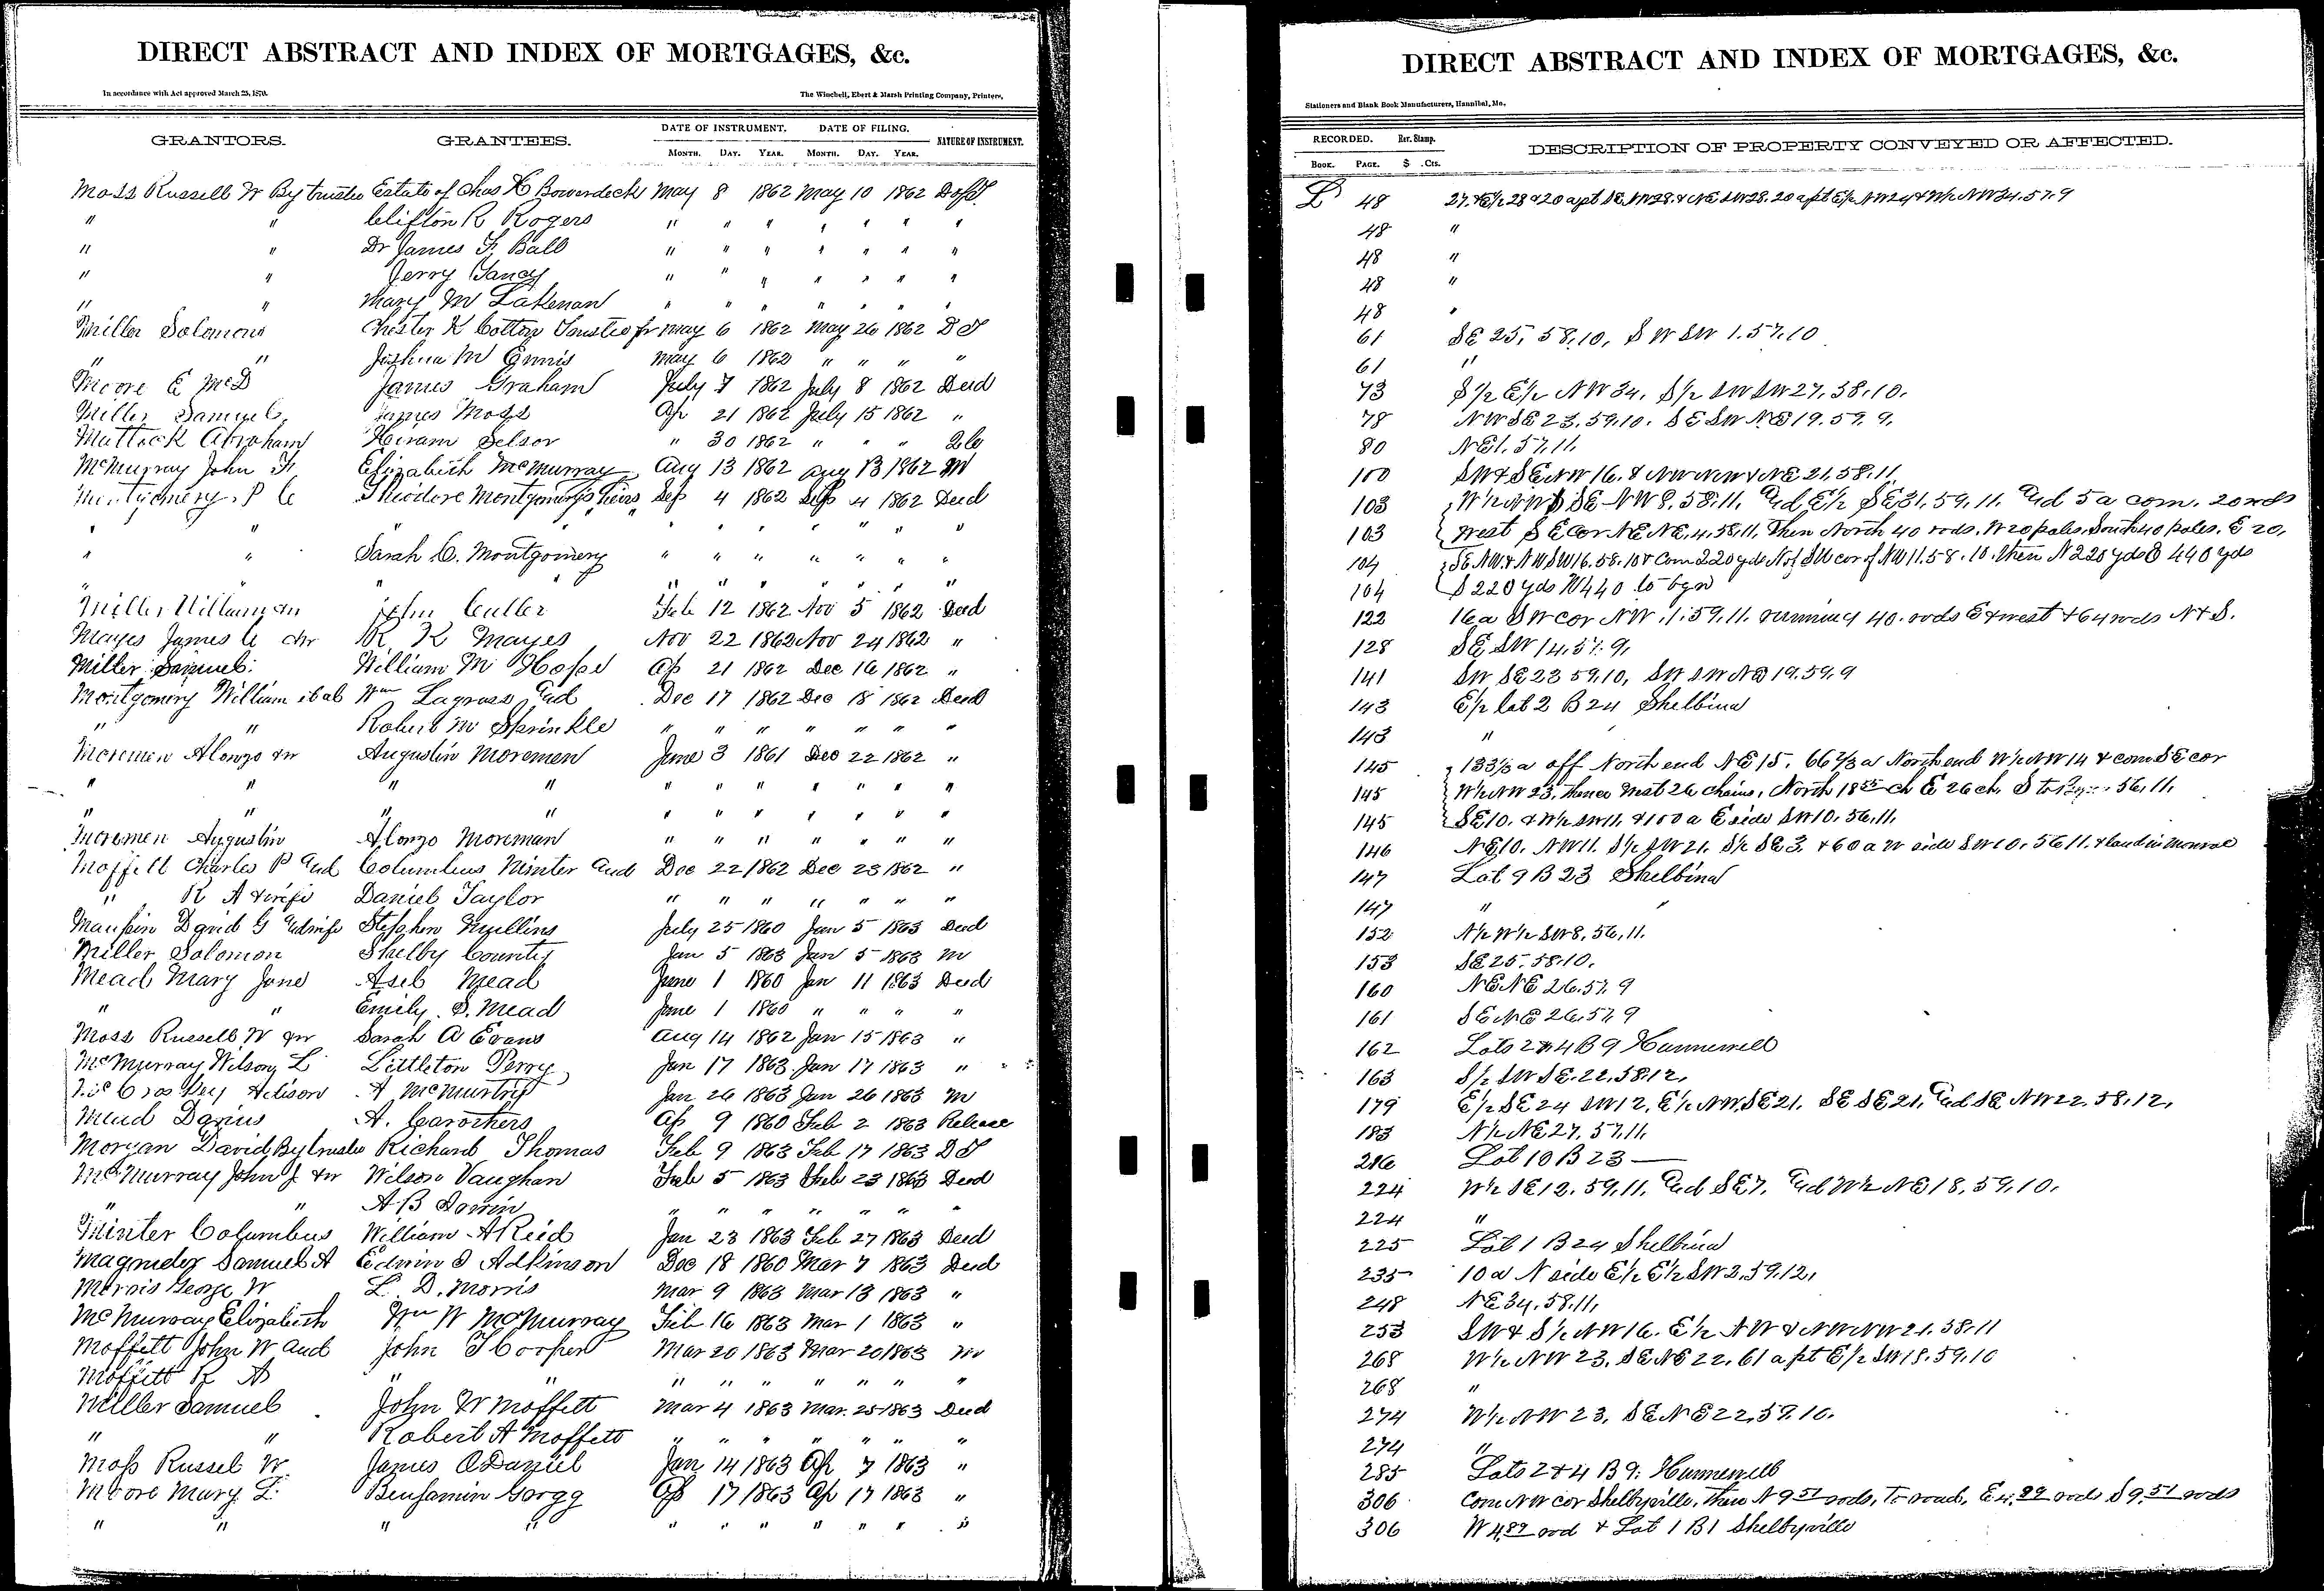 DIRECT ABSTRACT AND INDEX OF MORTGAGES, &c.
In accordance with Act approved March 25, 1870.
The Winchell, Ebert & Marsh Printing Company, Printers,
GRANTORS. GRANTEES. DATE OF INSTRUMENT. DATE OF FILING. NATURE OF INSTRUMENT.
MONTH. DAY. YEAR. MONTH. DAY. YEAR.
Moss Russell W By trustee Estate of Chas H May 8 1862 May 10 1862
" " Clifton R Rogers " " " " " " "
" " Dr James F Ball " " " " " " "
" " Jerry Yancy " " " " " " "
" " Mary M Lakenan " " " " " " "
Miller Solomon Chester K Cotton Trustee fr May 6 1862 May 26 1862 D T
" " Joshua M Ennis May 6 1862 " " " "
Moore E McD James Graham July 7 1862 July 8 1862 Deed
Miller Samuel James Moss Ap 21 1862 July 15 1862 "
Matlock Abraham Hiram Selsor " 30 1862 " " "
McMurray John F Elizabeth McMurray Aug 13 1862 Aug 13 1862 M
Montgomery P C Theodore Montgomerys heirs Sep 4 1862 Sep 4 1862 Deed
" " " " " " " " "
" " Sarah C. Montgomery " " " " " " "
" " " " " " " " "
Miller William John Culler Feb 12 1862 Nov 5 1862 Deed
Mayes James C R. K Mayes Nov 22 1862 Nov 24 1862 "
Miller Samuel William M Ap 21 1862 Dec 16 1862 "
Montgomery William et al Wm Lagrass End Dec 17 1862 Dec 18 1862 Deed
" " Robert M Sprinkle " " " " " " "
Moremen Alonzo &w Augustin Moremen June 3 1861 Dec 22 1862 "
" " " " " " " " " " "
" " " " " " " " " " "
Moremen Augustin Alonzo Moreman " " " " " " "
Moffett Charles P End Columbus Minter End Dec 22 1862 Dec 23 1862 "
" R A & wife Daniel Taylor " " " " " " "
Maupin David G & wife Stephen Mullins July 25 1860 Jan 5 1863 Deed
Miller Solomon Shelby County Jan 5 1863 Jan 5 1863 M
Mead Mary Jane Aseb Mead June 1 1860 Jan 11 1863 Deed
" " Emily S. Mead June 1 1860 " " " "
Moss Russell W &w Sarah A Evans Aug 14 1862 Jan 15 1863 "
McMurray Wilson L Littleton Perry Jan 17 1863 Jan 17 1863 "
Adison A McMurtry Jan 26 1863 Jan 26 1863 M
Mead Darius A. Carothers Ap 9 1860 Feb 2 1863 Release
Morgan David By trustee Richard Thomas Feb 9 1863 Feb 17 1863 D T
McMurray John J &w Wilson Vaughan Feb 5 1863 Feb 23 1863 Deed
" " A B " " " " " " "
Minter Columbus William A Reid Jan 23 1863 Feb 27 1863 Deed
Magruder Samuel A Edwin S Adkinson Dec 18 1860 Mar 7 1863 Deed
Morris George W L. D. Morris Mar 9 1863 Mar 13 1863 "
McMurray Elizabeth Wm W McMurray Feb 16 1863 Mar 1 1863 "
Moffett John W and John T Cooper Mar 20 1863 Mar 20 1863 M
Moffitt R A " " " " " " " " "
Miller Samuel John W Moffett Mar 4 1863 Mar. 25 1863 Deed
" " Robert A Moffett " " " " " " "
Moss Russel W. James O Daniel Jan 14 1863 Ap 7 1863 "
Moore Mary L. Benjamin Gorgg Ap 17 1863 Ap 17 1863 "
" " " " " " " " " " "
DIRECT ABSTRACT AND INDEX OF MORTGAGES, &c.
Stationers and Blank Book Manufacturers, Hannibal, Mo.
RECORDED. Rev. Stamp. DESCRIPTION OF PROPERTY CONVEYED OR AFFECTED.
BOOK. PAGE. $ Cts.
48
48 "
48 "
48 "
48 "
61 SE 25, 58, 10, SW SW 1. 57. 10
61 "
73 S 1/2 E 1/2 NW 34, S 1/2 SW SW 27. 58. 10.
78 NW SE 23. 59. 10. SE SW NE 19. 59. 9.
80 NE 1. 57. 11.
100 SW & SE NW 16. & NW NW & NE 21. 58. 11.
103 W 1/2 NW & SE NW 8. 58. 11. End E 1/2 SE 31. 59. 11. End 5 a com. 20 rds
103 West SE Cor NE NE, 4. 58. 11. Then North 40 rods, W 20 poles, South 40 poles, E 20.
104 SE NW & NW SW 16. 58. 10 & Com 220 yds N of SW cor of NW 11. 58. 10. then N 220 yds E 440 yds
104 S 220 yds W 440 to bgn
122 16 a SW cor NW. 1. 59. 11. running 40 rods E & west & 64 rods N & S.
128 SE SW 14. 57. 9.
141 SW SE 23 59. 10, SW SW NE 19. 59. 9
143 E 1/2 lot 2 B 24 Shelbina
143 "
145 133 1/3 a off North end NE 15. 66 2/3 a North end W 1/2 NW 14 & com SE cor
145 W 1/2 NW 23, thence West 26 chains, North 18 55 ch E 26 ch, S to 56. 11.
145 SE 10. & W 1/2 SW 11, & 100 a E side SW 10. 56. 11.
146 NE 10. NW 11. S 1/2 SW 21. S 1/2 SE 3. & 60 a W side SW 10. 56 11. & land in Monroe
147 Lot 9 B 23 Shelbina
147 " "
152 N 1/2 W 1/2 SW 8. 56. 11.
153 SE 25. 58. 10.
160 NE NE 26. 57. 9
161 SE NE 26. 57. 9
162 Lots 2 & 4 B 9 Hunnewell
163 S 1/2 SW SE. 22. 58. 12.
179 E 1/2 SE 24 SW 12. E 1/2 NW SE 21. SE SE 21. End SE NW 22. 58. 12.
183 N 1/2 NE 27. 57. 11.
216 Lot 10 B 23
224 W 1/2 SE 12. 59. 11. End SE 7. End W 1/2 NE 18. 59. 10.
224 "
225 Lot 1 B 24 Shelbina
235 10 a N side E 1/2 E 1/2 SW 3. 59. 12.
248 NE 34. 58. 11.
253 SW & S 1/2 NW 16. E 1/2 NW & NW NW 21. 58. 11
268 W 1/2 NW 23. SE NE 22. 61 a pt E 1/2 SW 18. 59. 10
268 "
274 W 1/2 NW 23. SE NE 22. 59. 10.
274 "
285 Lots 2 & 4 B 9. Hunnewell
306 Com NW cor Shelbyville, then N 9 51 rods, To road, E 4. 89 rods S 9. 51 rods
306 W 4. 89 rod & Lot 1 B 1 Shelbyville